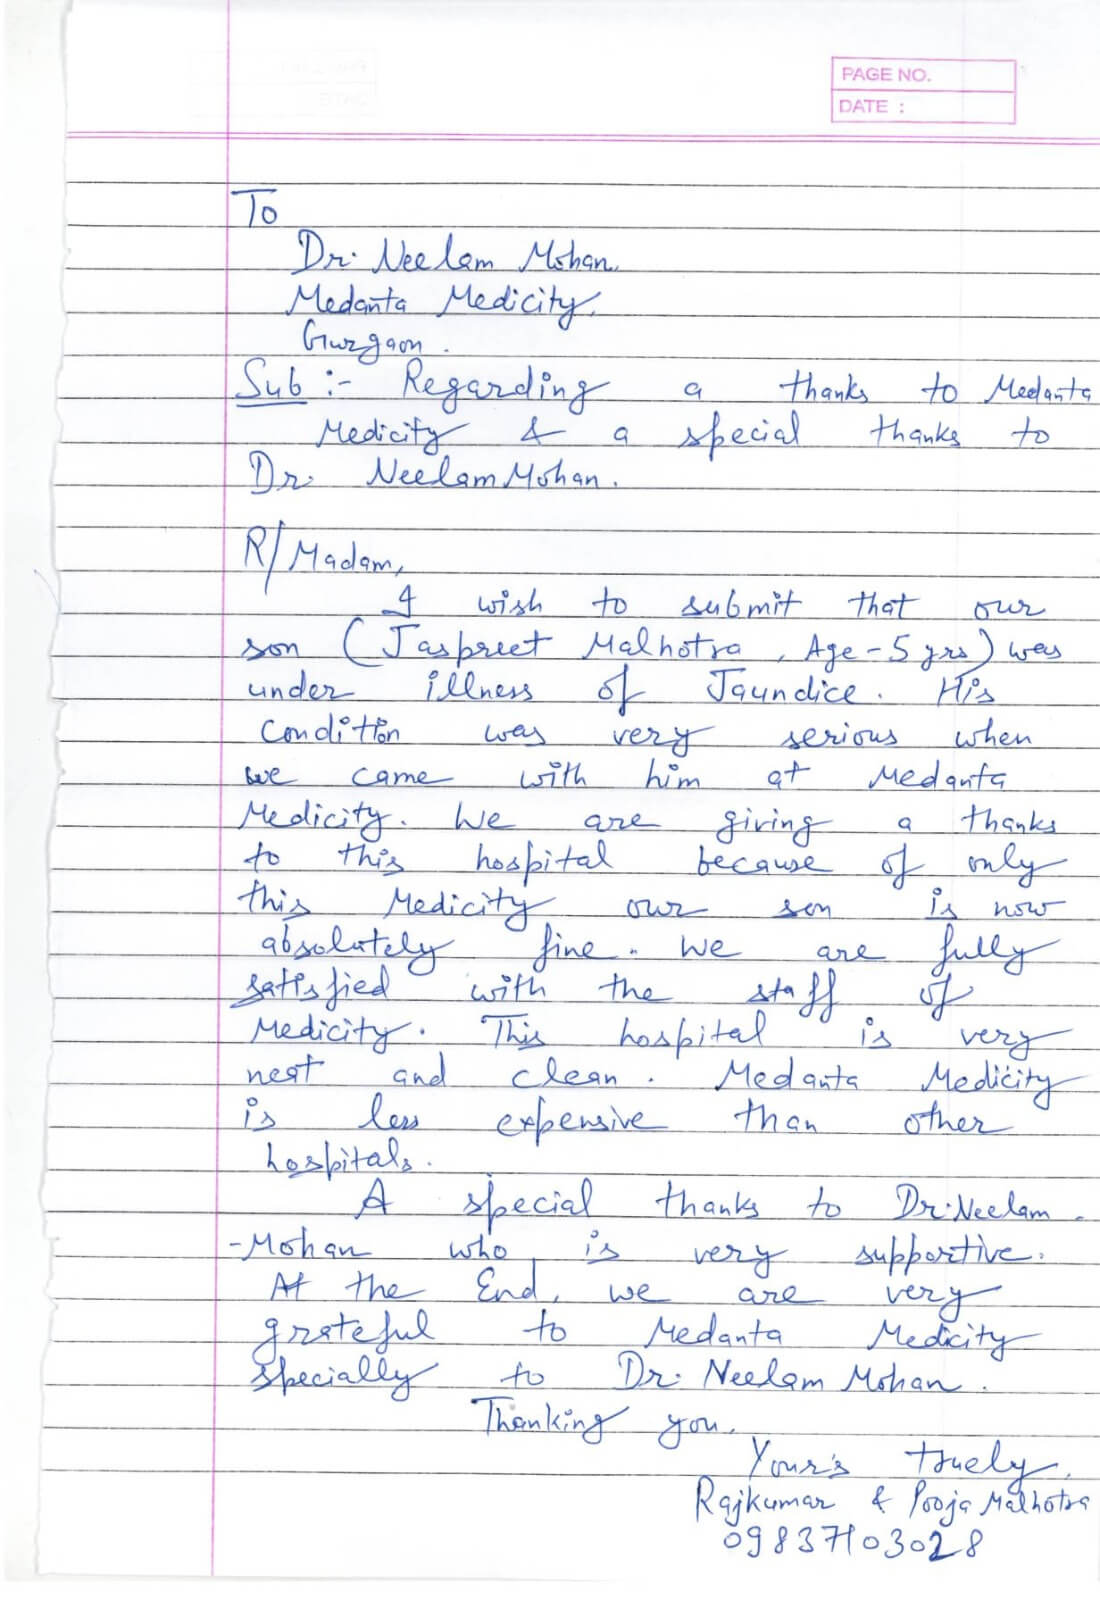 PAGE NO.
DATE :
To
Dr. Neelam Mohan.
Medanta Medicity,
Gurgaon.
Sub :- Regarding a thanks to Medanta
Medicity & a special thanks to
Dr. Neelam Mohan.
R/Madam,
I wish to submit that our
son (Jaspreet Malhotra, Age-5 yrs) was
under illness of Jaundice. His
condition was very serious when
we came with him at Medanta
Medicity. We are giving a thanks
to this hospital because of only
this Medicity our son is now
absolutely fine. We are fully
satisfied with the staff of
Medicity. This hospital is very
neat and clean. Medanta Medicity
is less expensive than other
hospitals.
A special thanks to Dr. Neelam
-Mohan who is very supportive.
At the End, we are very
grateful to Medanta Medicity
specially to Dr. Neelam Mohan.
Thanking you.
Your's truely,
Rajkumar & Pooja Malhotra
09837103028